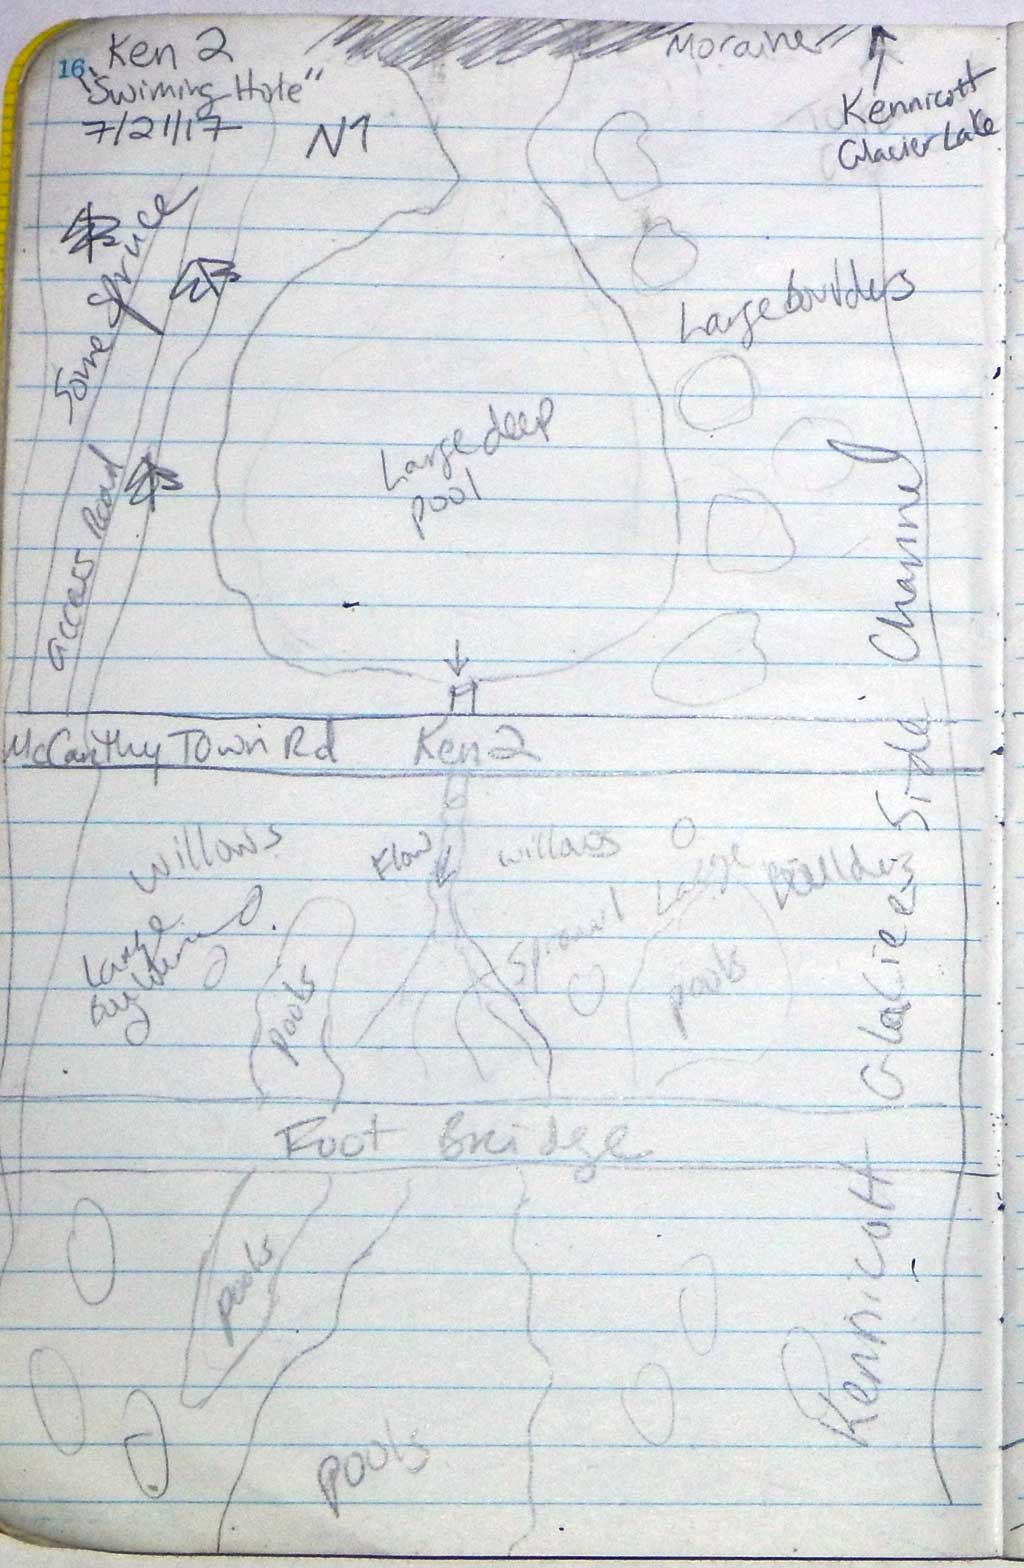 16
Ken 2
"Swiming Hole"
7/21/17
N↑
Moraine
Kennicott
Glacier Lake
Some Spruce
Large boulders
Large deep
pool
access Road
McCarthy Town Rd
Ken 2
willows
Flow
willows
Large
Large
pools
pools
Foot Bridge
pools
pools
Kennicott Glacier Side Channel